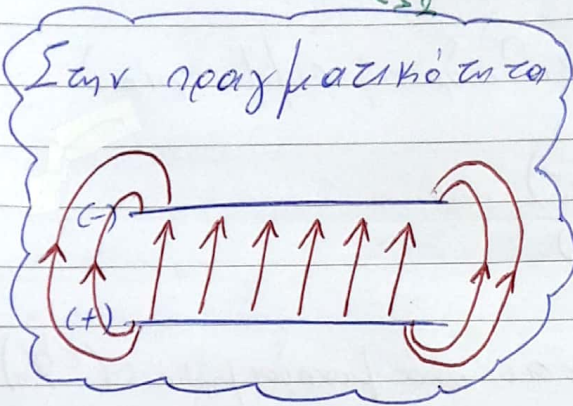 Στην πραγματικότητα
(-)
(+)